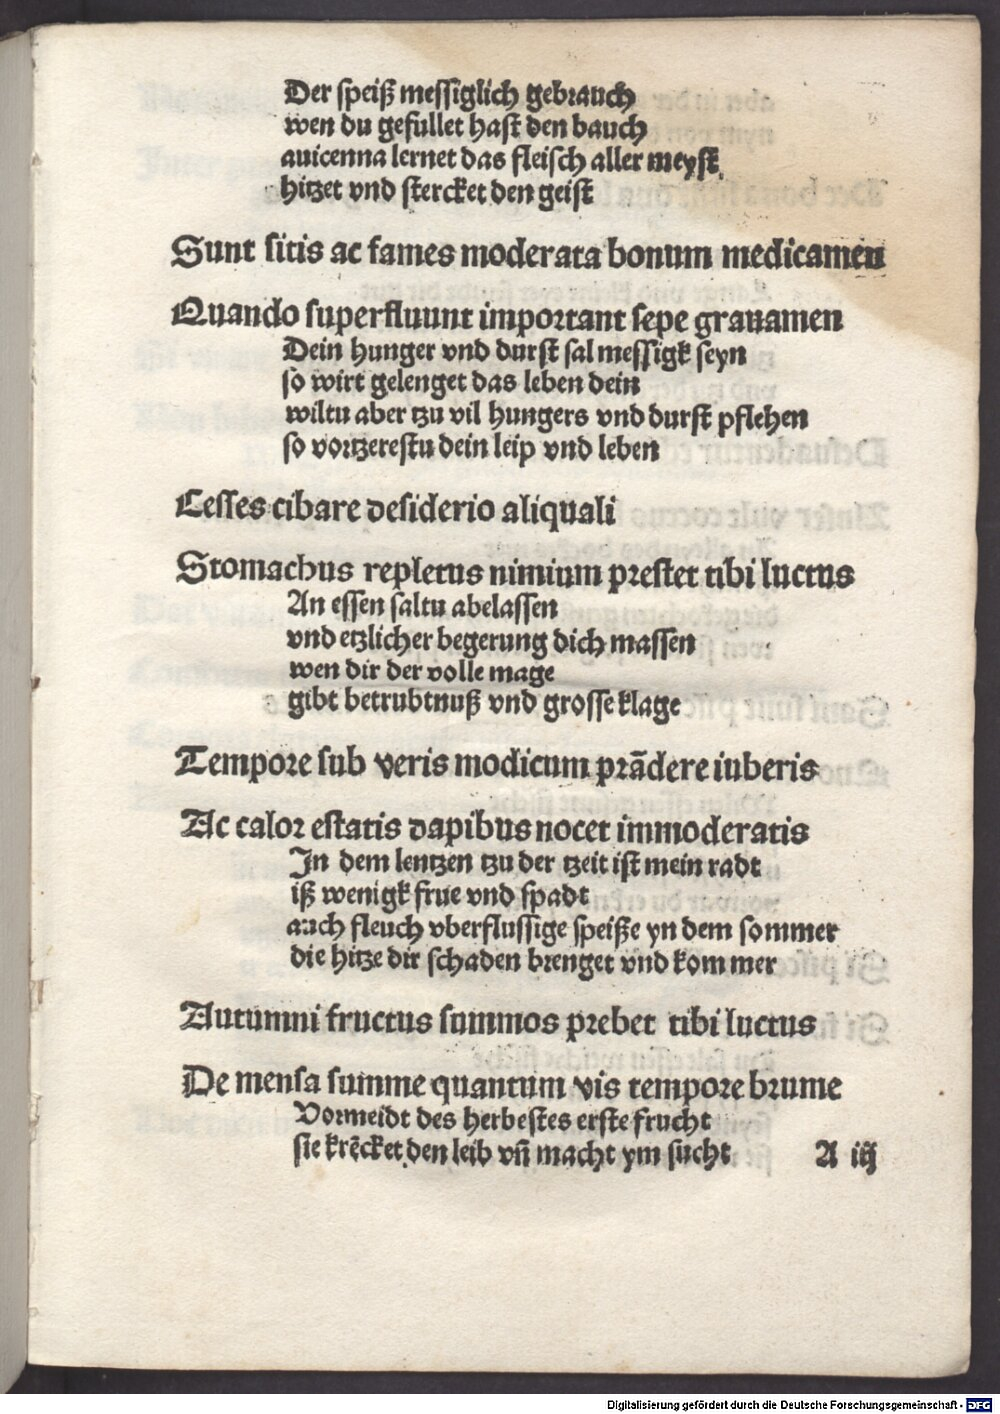 Der ſpeiß meſſiglich gebrauch
wen du gefullet haſt den bauch
auicenna lernet das fleiſch aller meyſt
hitzet vnd ſtercket den geiſt
Sunt ſitis ac fames moderata bonum medicamen
Quando ſuperfluunt important ſepe grauamen
Dein hunger vnd durſt ſal meſſigk ſeyn
ſo wirt gelenget das leben dein
wiltu aber tzu vil hungers vnd durſt pflehen
ſo vortzereſtu dein leip vnd leben
Ceſſes cibare deſiderio aliquali
Stomachus repletus nimium preſtet tibi luctus
An eſſen ſaltu abelaſſen
vnd etzlicher begerung dich maſſen
wen dir der volle mage
gibt betrubtnuß vnd groſſe klage
Tempore ſub veris modicum prãdere iuberis
Ac calor eſtatis dapibus nocet immoderatis
In dem lentzen tzu der tzeit iſt mein radt
iß wenigk frue vnd ſpadt
auch fleuch vberfluſſige ſpeiße yn dem ſommer
die hitze dir ſchaden brenget vnd kommer
Autumni fructus ſummos prebet tibi luctus
De menſa ſumme quantum vis tempore brume
Vormeidt des herbeſtes erſte frucht
ſie krẽcket den leib vñ macht ym ſucht A iij
Digitalisierung gefördert durch die Deutsche Forschungsgemeinschaft - DFG